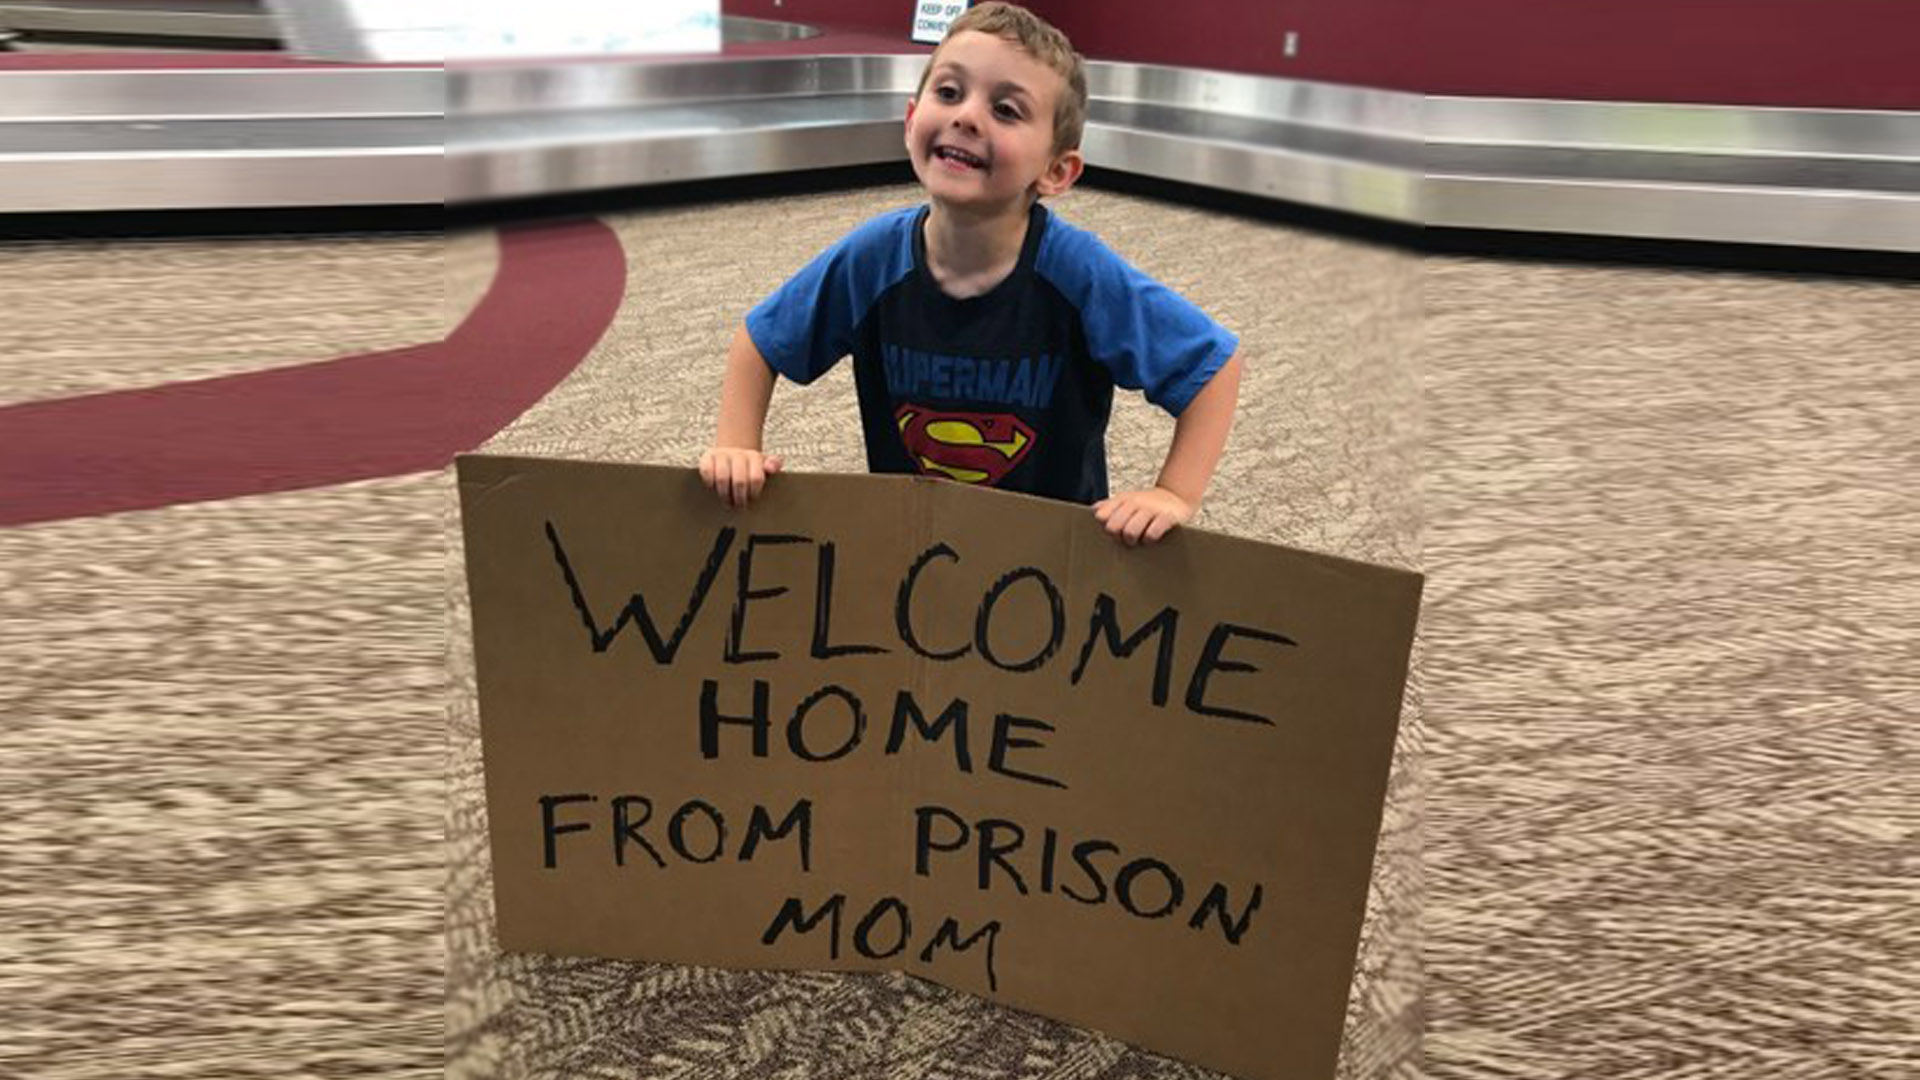 KEEP OFF
SUPERMAN
S
WELCOME
HOME
FROM PRISON
MOM